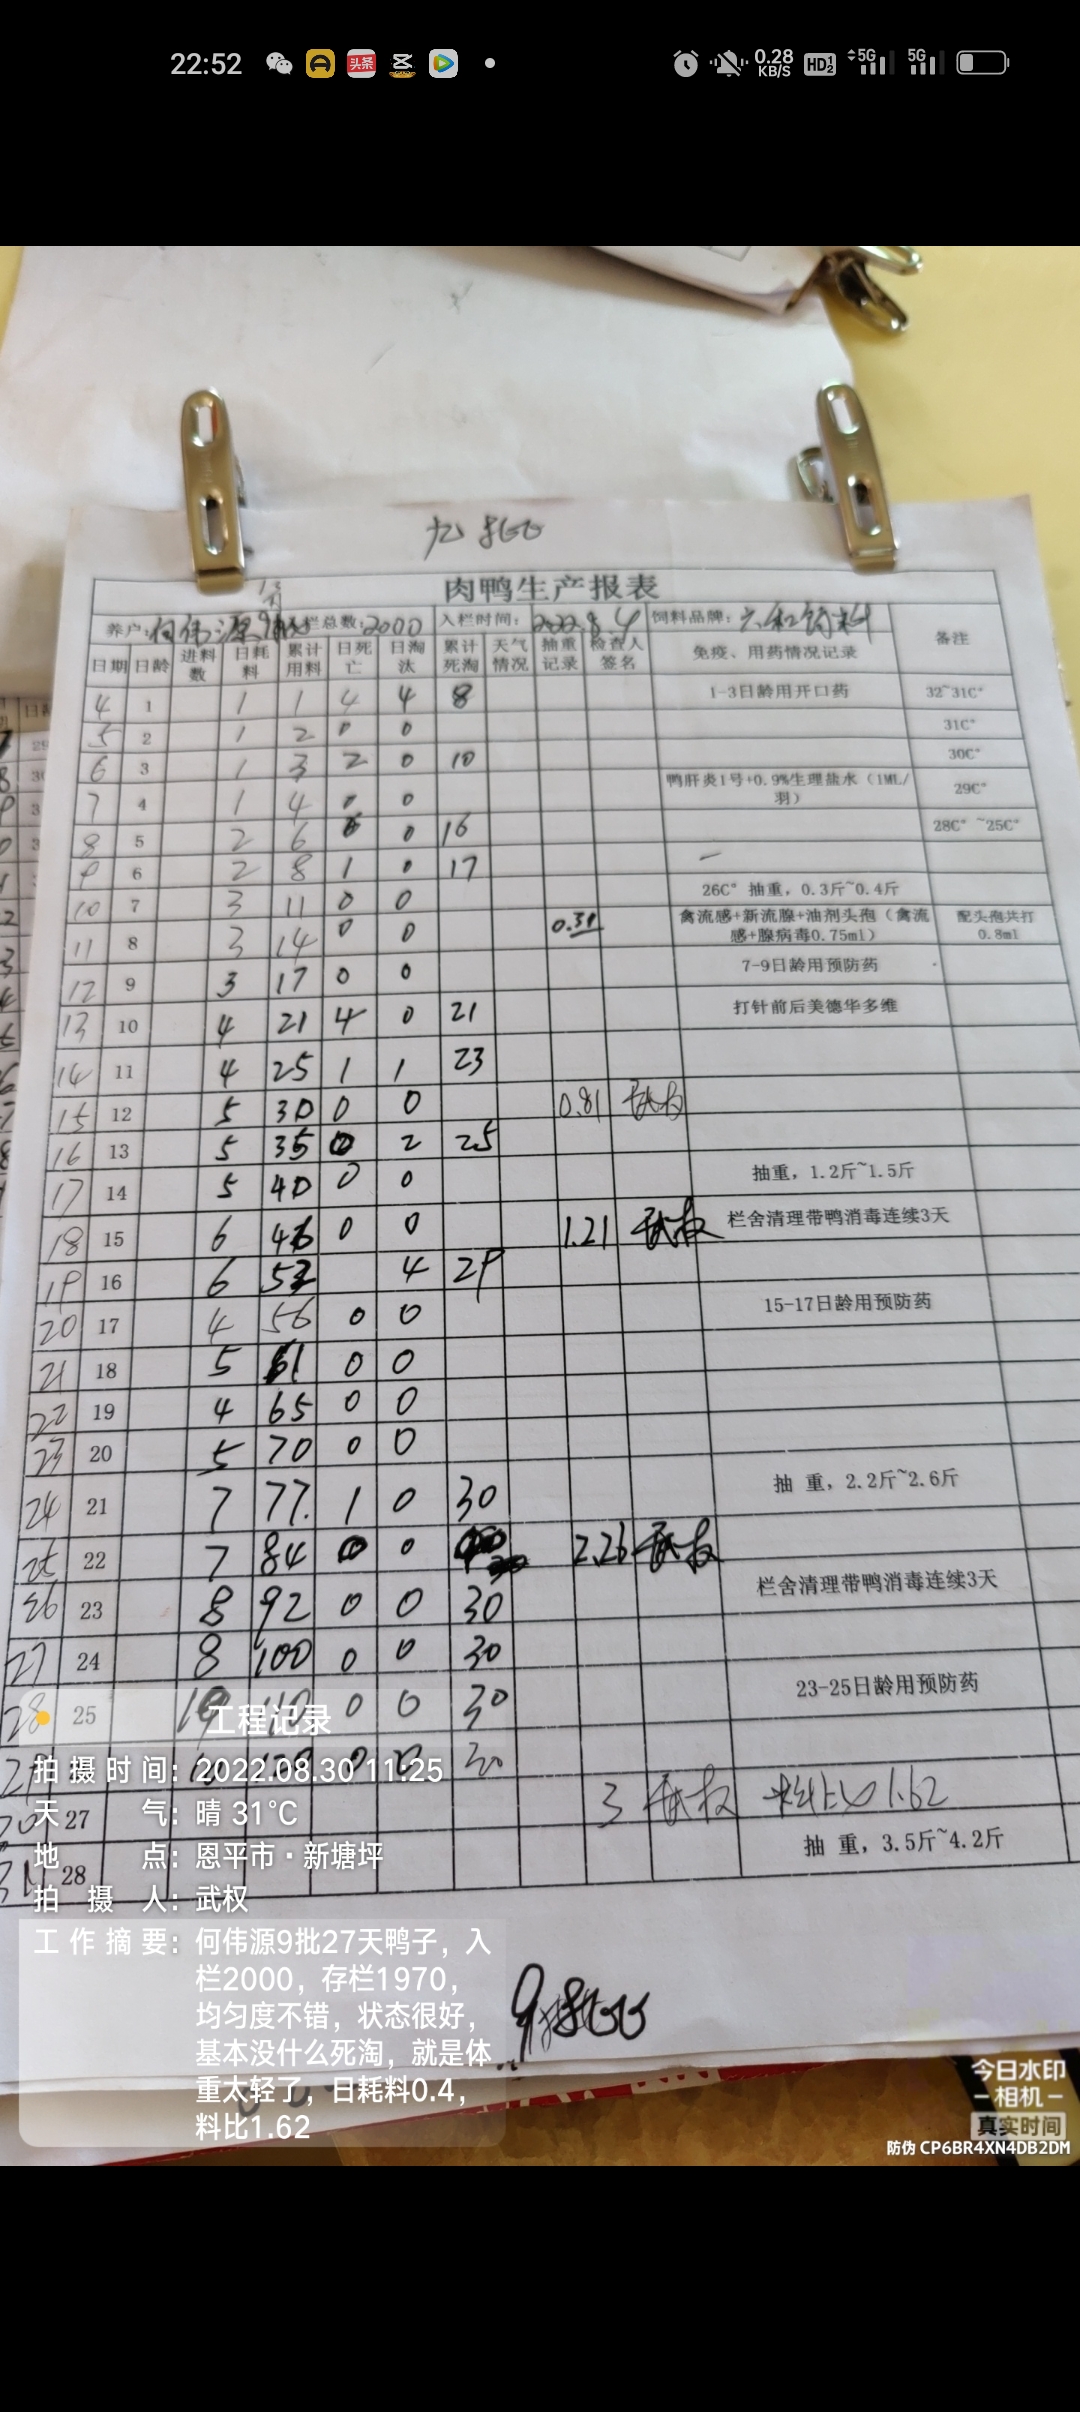 22:52
0.28 KB/S HD 5G 5G
头条
九批
肉鸭生产报表
养户: 何伟源 栏总数: 2000 入栏时间: 2022.8.4 饲料品牌: 六和饲料 备注
日期 日龄 进料数 日耗料 累计用料 日死亡 日淘汰 累计死淘 天气情况 抽重记录 检查人签名 免疫、用药情况记录
4 1 1 1 4 4 8 1-3日龄用开口药 32~31C°
5 2 1 2 0 0 31C°
6 3 1 3 2 0 10 30C°
7 4 1 4 0 0 鸭肝炎1号+0.9%生理盐水（1ML/羽） 29C°
8 5 2 6 6 0 16 28C°~25C°
9 6 2 8 1 0 17
10 7 3 11 0 0 26C° 抽重，0.3斤~0.4斤
11 8 3 14 0 0 0.31 禽流感+新流腺+油剂头孢（禽流感+腺病毒0.75ml） 配头孢共打0.8ml
12 9 3 17 0 0 7-9日龄用预防药
13 10 4 21 4 0 21 打针前后美德华多维
14 11 4 25 1 1 23
15 12 5 30 0 0 0.81 武权
16 13 5 35 0 2 25
17 14 5 40 0 0 抽重，1.2斤~1.5斤
18 15 6 46 0 0 1.21 武权 栏舍清理带鸭消毒连续3天
19 16 6 52 4 29
20 17 4 56 0 0 15-17日龄用预防药
21 18 5 61 0 0
22 19 4 65 0 0
23 20 5 70 0 0
24 21 7 77. 1 0 30 抽 重，2.2斤~2.6斤
25 22 7 84 0 0 30 2.26 武权
26 23 8 92 0 0 30 栏舍清理带鸭消毒连续3天
27 24 8 100 0 0 30
28 25 10 110 0 0 30 23-25日龄用预防药
27 3 武权 料比 1.62
28 抽 重，3.5斤~4.2斤
工程记录
拍摄时间：2022.08.30 11:25
天 气：晴 31℃
地 点：恩平市·新塘坪
拍 摄 人：武权
工作摘要：何伟源9批27天鸭子，入
栏2000，存栏1970，
均匀度不错，状态很好，
基本没什么死淘，就是体
重太轻了，日耗料0.4，
料比1.62
9批
今日水印
相机
真实时间
防伪 CP6BR4XN4DB2DM